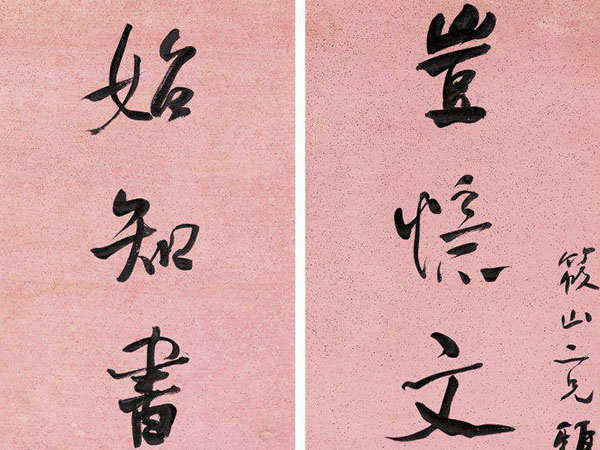 筱山二兄雅
豈憶文
始知書